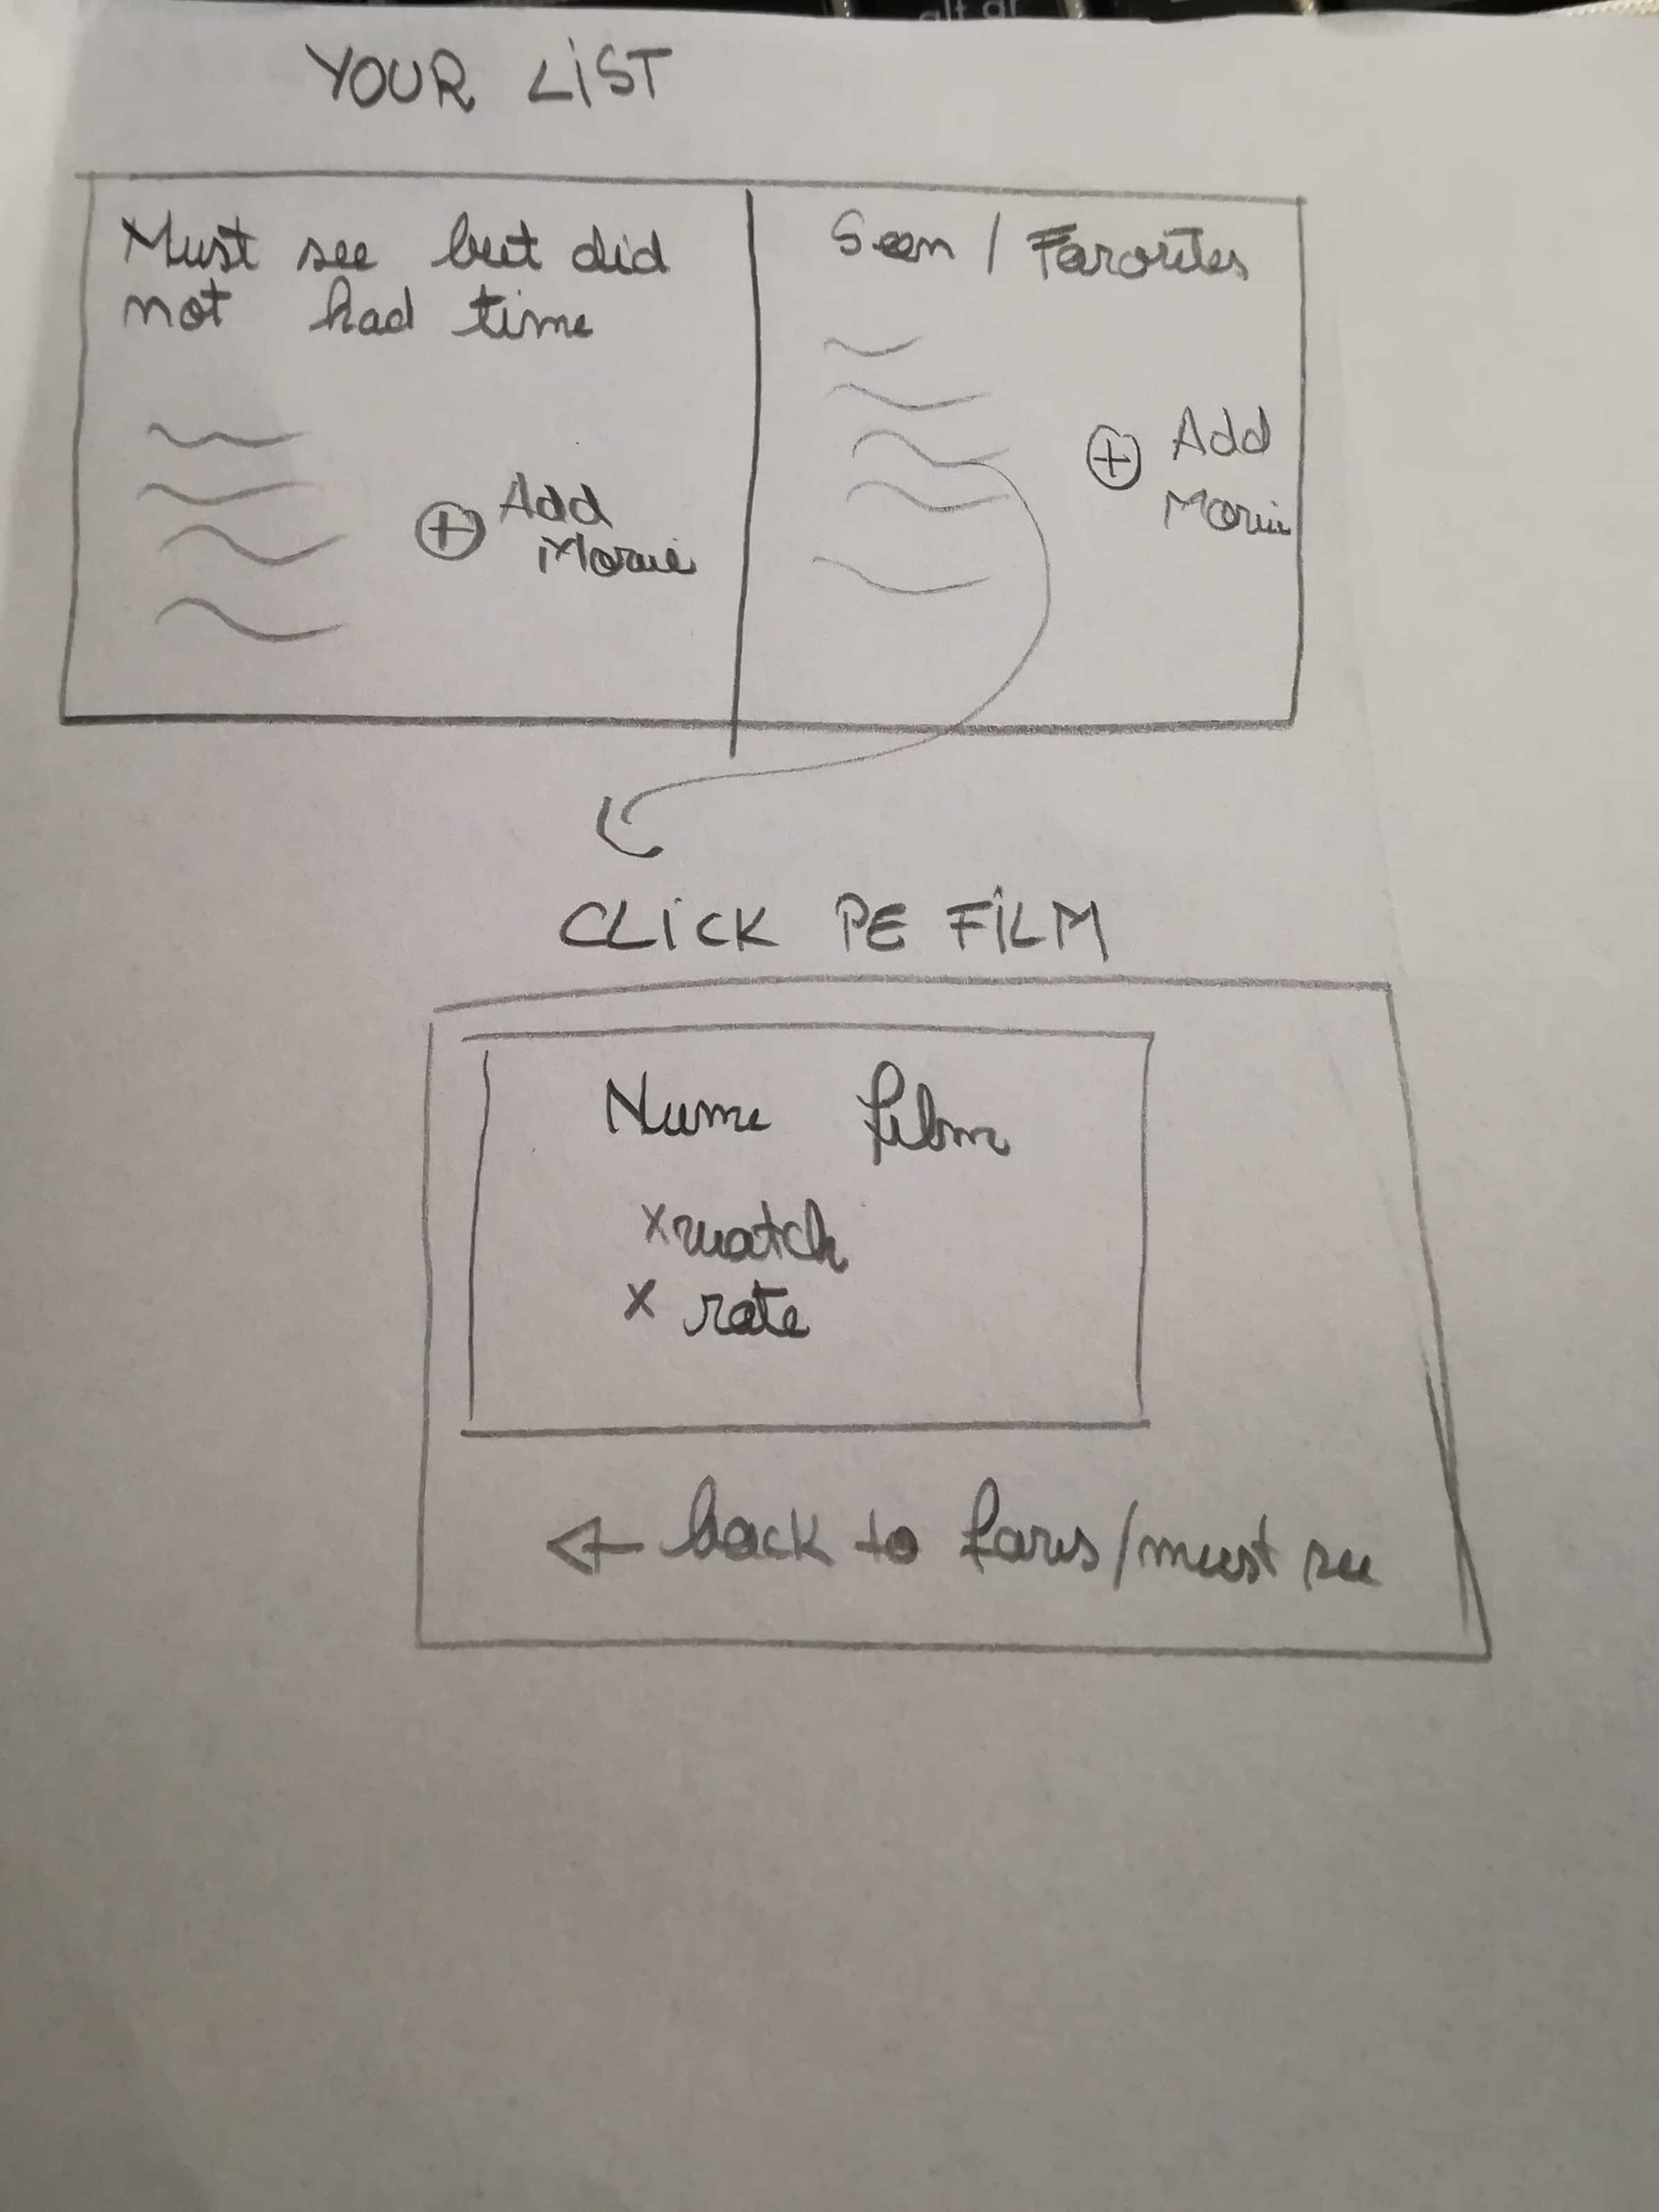 alt gr
YOUR LIST
Must see but did
not had time
Add
Movie
Seen / Favorites
Add
Movie
CLICK PE FILM
Nume film
x watch
x rate
back to favs/must see